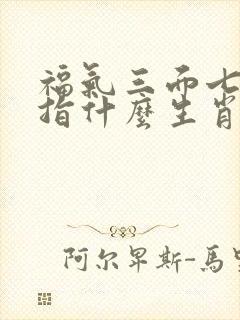 福氣三而七
指什麼生肖
阿尔卑斯-馬